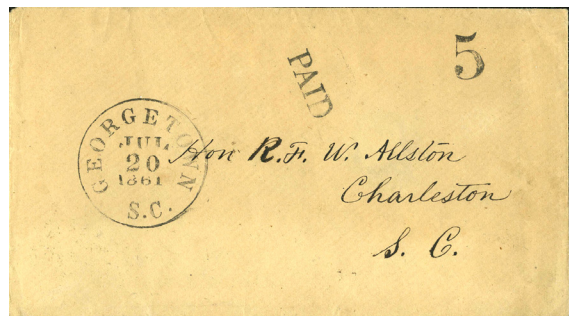 5
PAID
GEORGETOWN
JUL
20
1861
S.C.
Hon R. F. W. Allston
Charleston
S. C.